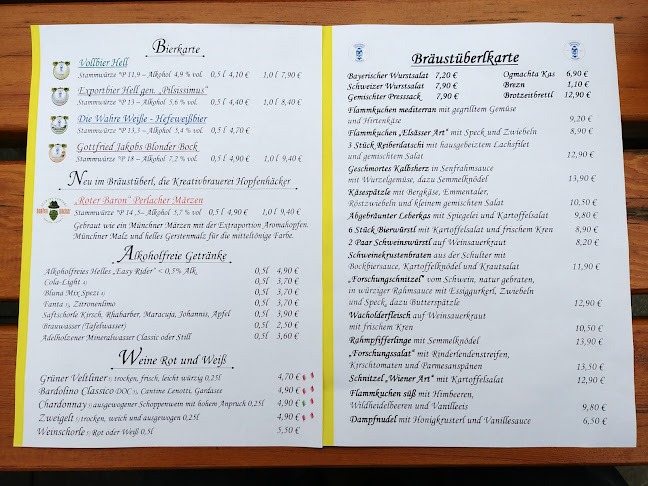 Bierkarte
Vollbier Hell
Stammwürze °P 11,9 – Alkohol 4,9 % vol. 0,5l 4,10 € 1,0 l 7,90 €
Exportbier Hell gen. „Pilsissimus"
Stammwürze °P 13 – Alkohol 5,6 % vol. 0,5l 4,40 € 1,0 l 8,40 €
Die Wahre Weiße - Hefeweißbier
Stammwürze °P 13,3 – Alkohol 5,4 % vol. 0,5 l 4,70 €
Gottfried Jakobs Blonder Bock
Stammwürze °P 18 – Alkohol 7,2 % vol. 0,5l 4,90 € 1,0 l 9,40 €
Neu im Bräustüberl, die Kreativbrauerei Hopfenhäcker
„Roter Baron" Perlacher Märzen
Stammwürze °P 14,5– Alkohol 5,7 % vol 0,5 l 4,90 € 1,0 l 9,40 €
Gebraut wie ein Münchner Märzen mit der Extraportion Aromahopfen.
Münchner Malz und helles Gerstenmalz für die mitteltönige Farbe.
Alkoholfreie Getränke
Alkoholfreies Helles „Easy Rider" < 0,5% Alk. 0,5l 4,90 €
Cola-Light 0,5l 3,70 €
Bluna Mix Spezi 0,5l 3,70 €
Fanta, Zitronenlimo 0,5l 3,70 €
Saftschorle Kirsch, Rhabarber, Maracuja, Johannis, Apfel 0,5l 3,90 €
Brauwasser (Tafelwasser) 0,5l 2,50 €
Adelholzener Mineralwasser Classic oder Still 0,5l 3,60 €
Weine Rot und Weiß
Grüner Veltliner trocken, frisch, leicht würzig 0,25l 4,70 €
Bardolino Classico DOC, Cantine Lenotti, Gardasee 4,90 €
Chardonnay ausgewogener Schoppenwein mit hohem Anspruch 0,25l 4,90 €
Zweigelt trocken, weich und ausgewogen 0,25l 4,90 €
Weinschorle Rot oder Weiß 0,5l 5,50 €
Bräustüberlkarte
Bayerischer Wurstsalat 7,20 € Ogmachta Kas 6,90 €
Schweizer Wurstsalat 7,90 € Brezn 1,10 €
Gemischter Presssack 7,90 € Brotzeitbrettl 12,90 €
Flammkuchen mediterran mit gegrilltem Gemüse
und Hirtenkäse 9,20 €
Flammkuchen „Elsässer Art" mit Speck und Zwiebeln 8,90 €
3 Stück Reiberdatschi mit hausgebeiztem Lachsfilet
und gemischtem Salat 12,90 €
Geschmortes Kalbsherz in Senfrahmsauce
mit Wurzelgemüse, dazu Semmelknödel 13,90 €
Käsespätzle mit Bergkäse, Emmentaler,
Röstzwiebeln und kleinem gemischten Salat 10,50 €
Abgebräunter Leberkas mit Spiegelei und Kartoffelsalat 9,80 €
6 Stück Bierwürstl mit Kartoffelsalat und frischem Kren 8,90 €
2 Paar Schweinswürstl auf Weinsauerkraut 8,20 €
Schweinekrustenbraten aus der Schulter mit
Bockbiersauce, Kartoffelknödel und Krautsalat 11,90 €
„Forschungschnitzel" vom Schwein, natur gebraten,
in würziger Rahmsauce mit Essiggurkerl, Zwiebeln
und Speck, dazu Butterspätzle 12,90 €
Wacholderfleisch auf Weinsauerkraut
mit frischem Kren 10,50 €
Rahmpfifferlinge mit Semmelknödel 13,90 €
„Forschungssalat" mit Rinderlendenstreifen,
Kirschtomaten und Parmesanspänen 13,50 €
Schnitzel „Wiener Art" mit Kartoffelsalat 12,90 €
Flammkuchen süß mit Himbeeren,
Wildheidelbeeren und Vanilleeis 9,80 €
Dampfnudel mit Honigkrusterl und Vanillesauce 6,50 €